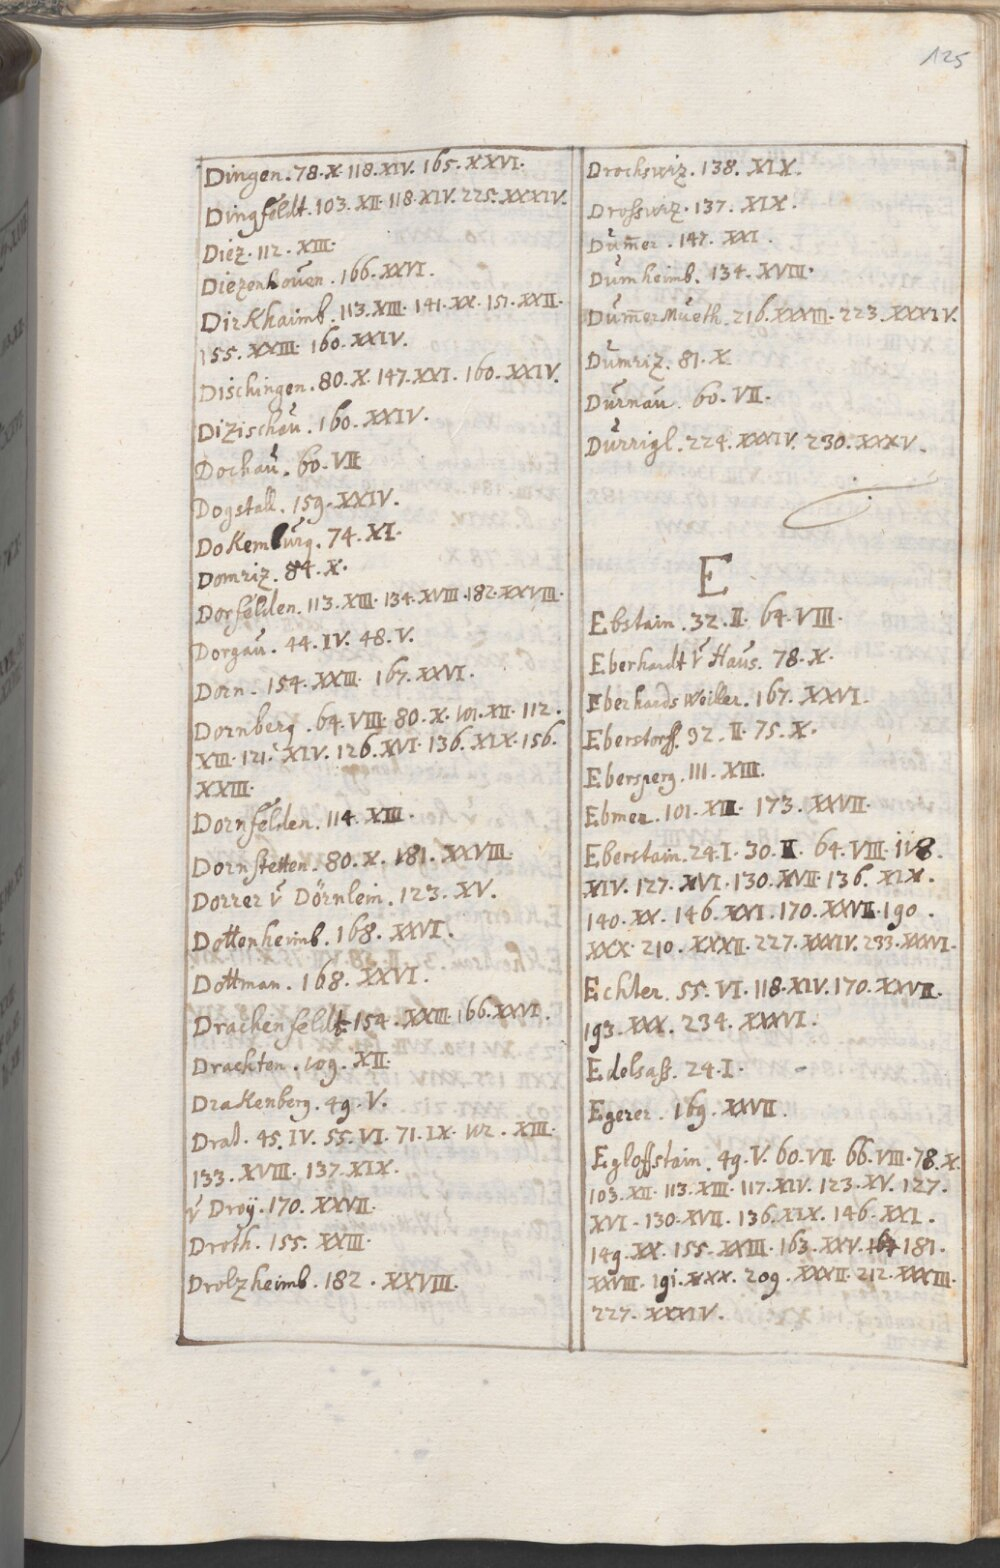 125
Dingen. 78. X. 118. XIV. 165. XXVI.
Dingfeldt. 103. XII. 118. XIV. 225. XXXIV.
Diez. 112. XIII.
Diezenhoŭen. 166. XXVI.
DirKhaimb. 113. XIII. 141. XX. 151. XXII.
155. XXIII. 160. XXIV.
Dischingen. 80. X. 147. XXI. 160. XXIV.
Dizischaŭ. 160. XXIV.
Dochaŭ. 60. VII
Dogstall. 159. XXIV.
DoKembŭrg. 74. XI.
Domriz. 84. X.
Dorfelden. 113. XIII. 134. XVIII. 182. XXVIII.
Dorgaŭ. 44. IV. 48. V.
Dorn. 154. XXIII. 167. XXVI.
Dornberg. 64. VIII. 80. X. 101. XII. 112.
XIII. 121. XIV. 126. XVI. 136. XIX. 156.
XXIII.
Dornfelden. 114. XIII.
Dornstetten. 80. X. 181. XXVIII.
Dorrer v̆ Dörnlein. 123. XV.
Dottenheimb. 168. XXVI.
Dottman. 168. XXVI.
Drachenfeldt. 154. XXIII. 166. XXVI.
Drachten. 109. XII.
DraKenberg. 49. V.
Drat. 45. IV. 55. VI. 71. IX. 112. XIII.
133. XVIII. 137. XIX.
v̆ Droÿ. 170. XXVII.
Droth. 155. XXIII.
Drolzheimb. 182. XXVIII.
Drochswiz. 138. XIX.
Droßwiz. 137. XIX.
Dŭm̄er. 147. XXI.
Dŭmheimb. 134. XVIII.
Dŭm̄erMŭeth. 216. XXXIII. 223. XXXIV.
Dŭmriz. 81. X.
Dŭrnaŭ. 60. VII.
Dŭrrigl. 224. XXXIV. 230. XXXV.
E
Ebstain. 32. II. 64. VIII.
Eberhardt v̆ Haŭs. 78. X.
Eberhards Weiler. 167. XXVI.
Eberstorff. 32. II. 75. X.
Ebersperg. 111. XIII.
Ebmer. 101. XII. 173. XXVII.
Eberstain. 24. I. 30. II. 64. VIII. 118.
XIV. 127. XVI. 130. XVII. 136. XIX.
140. XX. 146. XXI. 170. XXVII. 190.
XXX. 210. XXXII. 227. XXXIV. 233. XXXVI.
Echter. 55. VI. 118. XIV. 170. XXVII.
193. XXX. 234. XXXVI.
Edelsaß. 24. I.
Egerer. 169. XXVII.
Egloffstain. 49. V. 60. VII. 66. VIII. 78. X.
103. XII. 113. XIII. 117. XIV. 123. XV. 127.
XVI. 130. XVII. 136. XIX. 146. XXI.
149. XX. 155. XXIII. 163. XXV. 181.
XXVIII. 191. XXX. 209. XXXII. 212. XXXIII.
227. XXXIV.